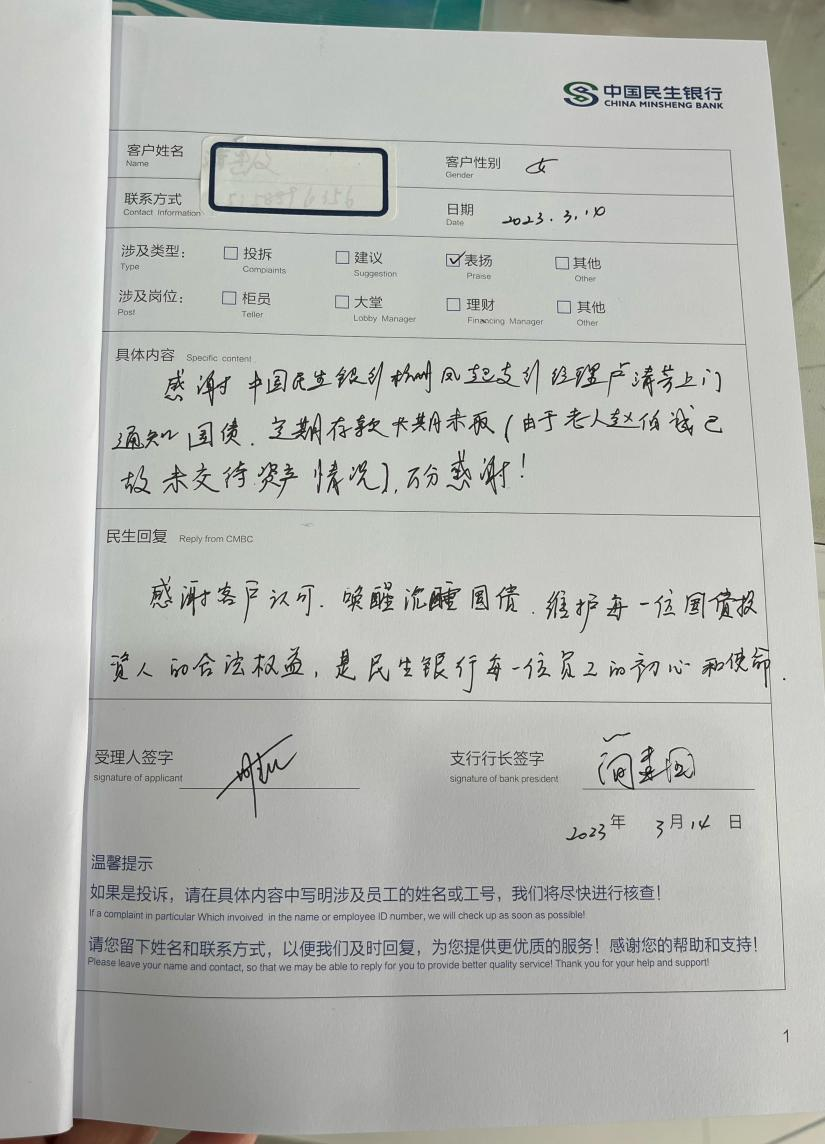 中国民生银行
CHINA MINSHENG BANK
客户姓名
Name
客户性别 女
Gender
联系方式
Contact Information
日期 2023.3.10
Date
涉及类型: 投拆 建议 表扬 其他
Type Complaints Suggestion Praise Other
涉及岗位: 柜员 大堂 理财 其他
Post Teller Lobby Manager Financing Manager Other
具体内容 Specific content
感谢中国民生银行杭州凤起支行经理卢清芳上门
通知国债、定期存款长期未取(由于老人赵伯诚已
故未交待资产情况),万分感谢!
民生回复 Reply from CMBC
感谢客户认可.唤醒沉睡国债、维护每一位国债投
资人的合法权益,是民生银行每一位员工的初心和使命.
受理人签字
signature of applicant
支行行长签字
signature of bank president
2023年 3月14日
温馨提示
如果是投诉,请在具体内容中写明涉及员工的姓名或工号,我们将尽快进行核查!
If a complaint in particular Which invoived in the name or employee ID number, we will check up as soon as possible!
请您留下姓名和联系方式,以便我们及时回复,为您提供更优质的服务!感谢您的帮助和支持!
Please leave your name and contact, so that we may be able to reply for you to provide better quality service! Thank you for your help and support!
1